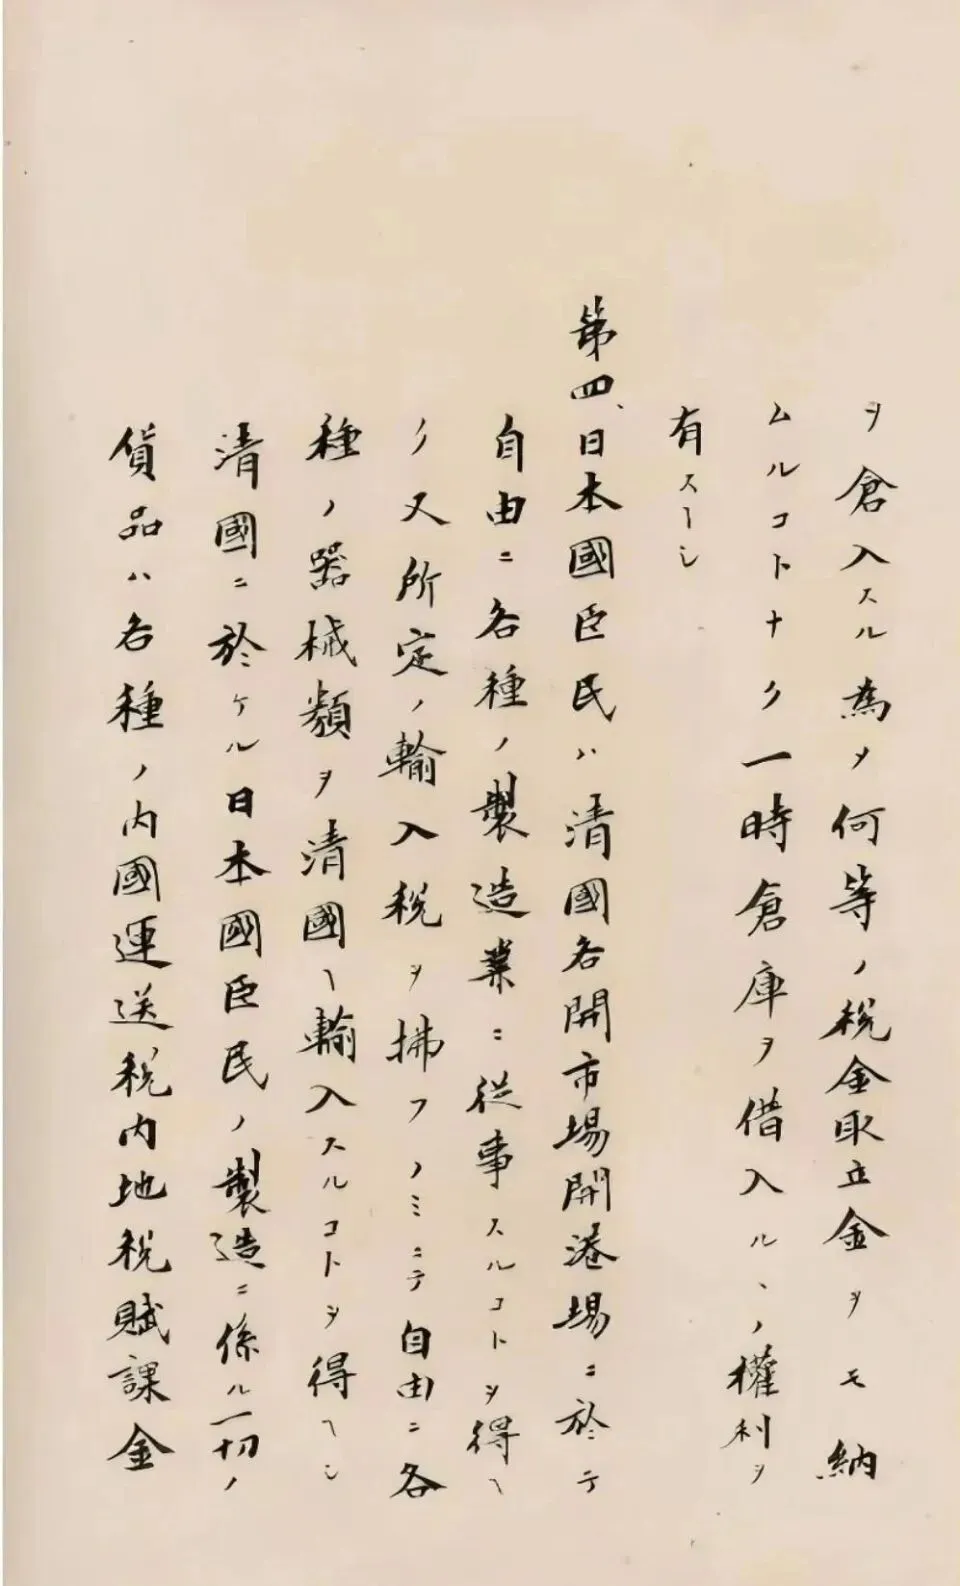 ヲ倉入スル為メ何等ノ税金取立金ヲモ納
ムルコトナク一時倉庫ヲ借入ルヽノ權利ヲ
有スヘシ
第四、日本國臣民ハ清國各開市場開港場ニ於テ
自由ニ各種ノ製造業ニ從事スルコトヲ得ヘ
ク又所定ノ輸入税ヲ拂フノミニテ自由ニ各
種ノ器械類ヲ清國ヘ輸入スルコトヲ得ヘシ
清國ニ於ケル日本國臣民ノ製造ニ係ル一切ノ
貨品ハ各種ノ内國運送税内地税賦課金